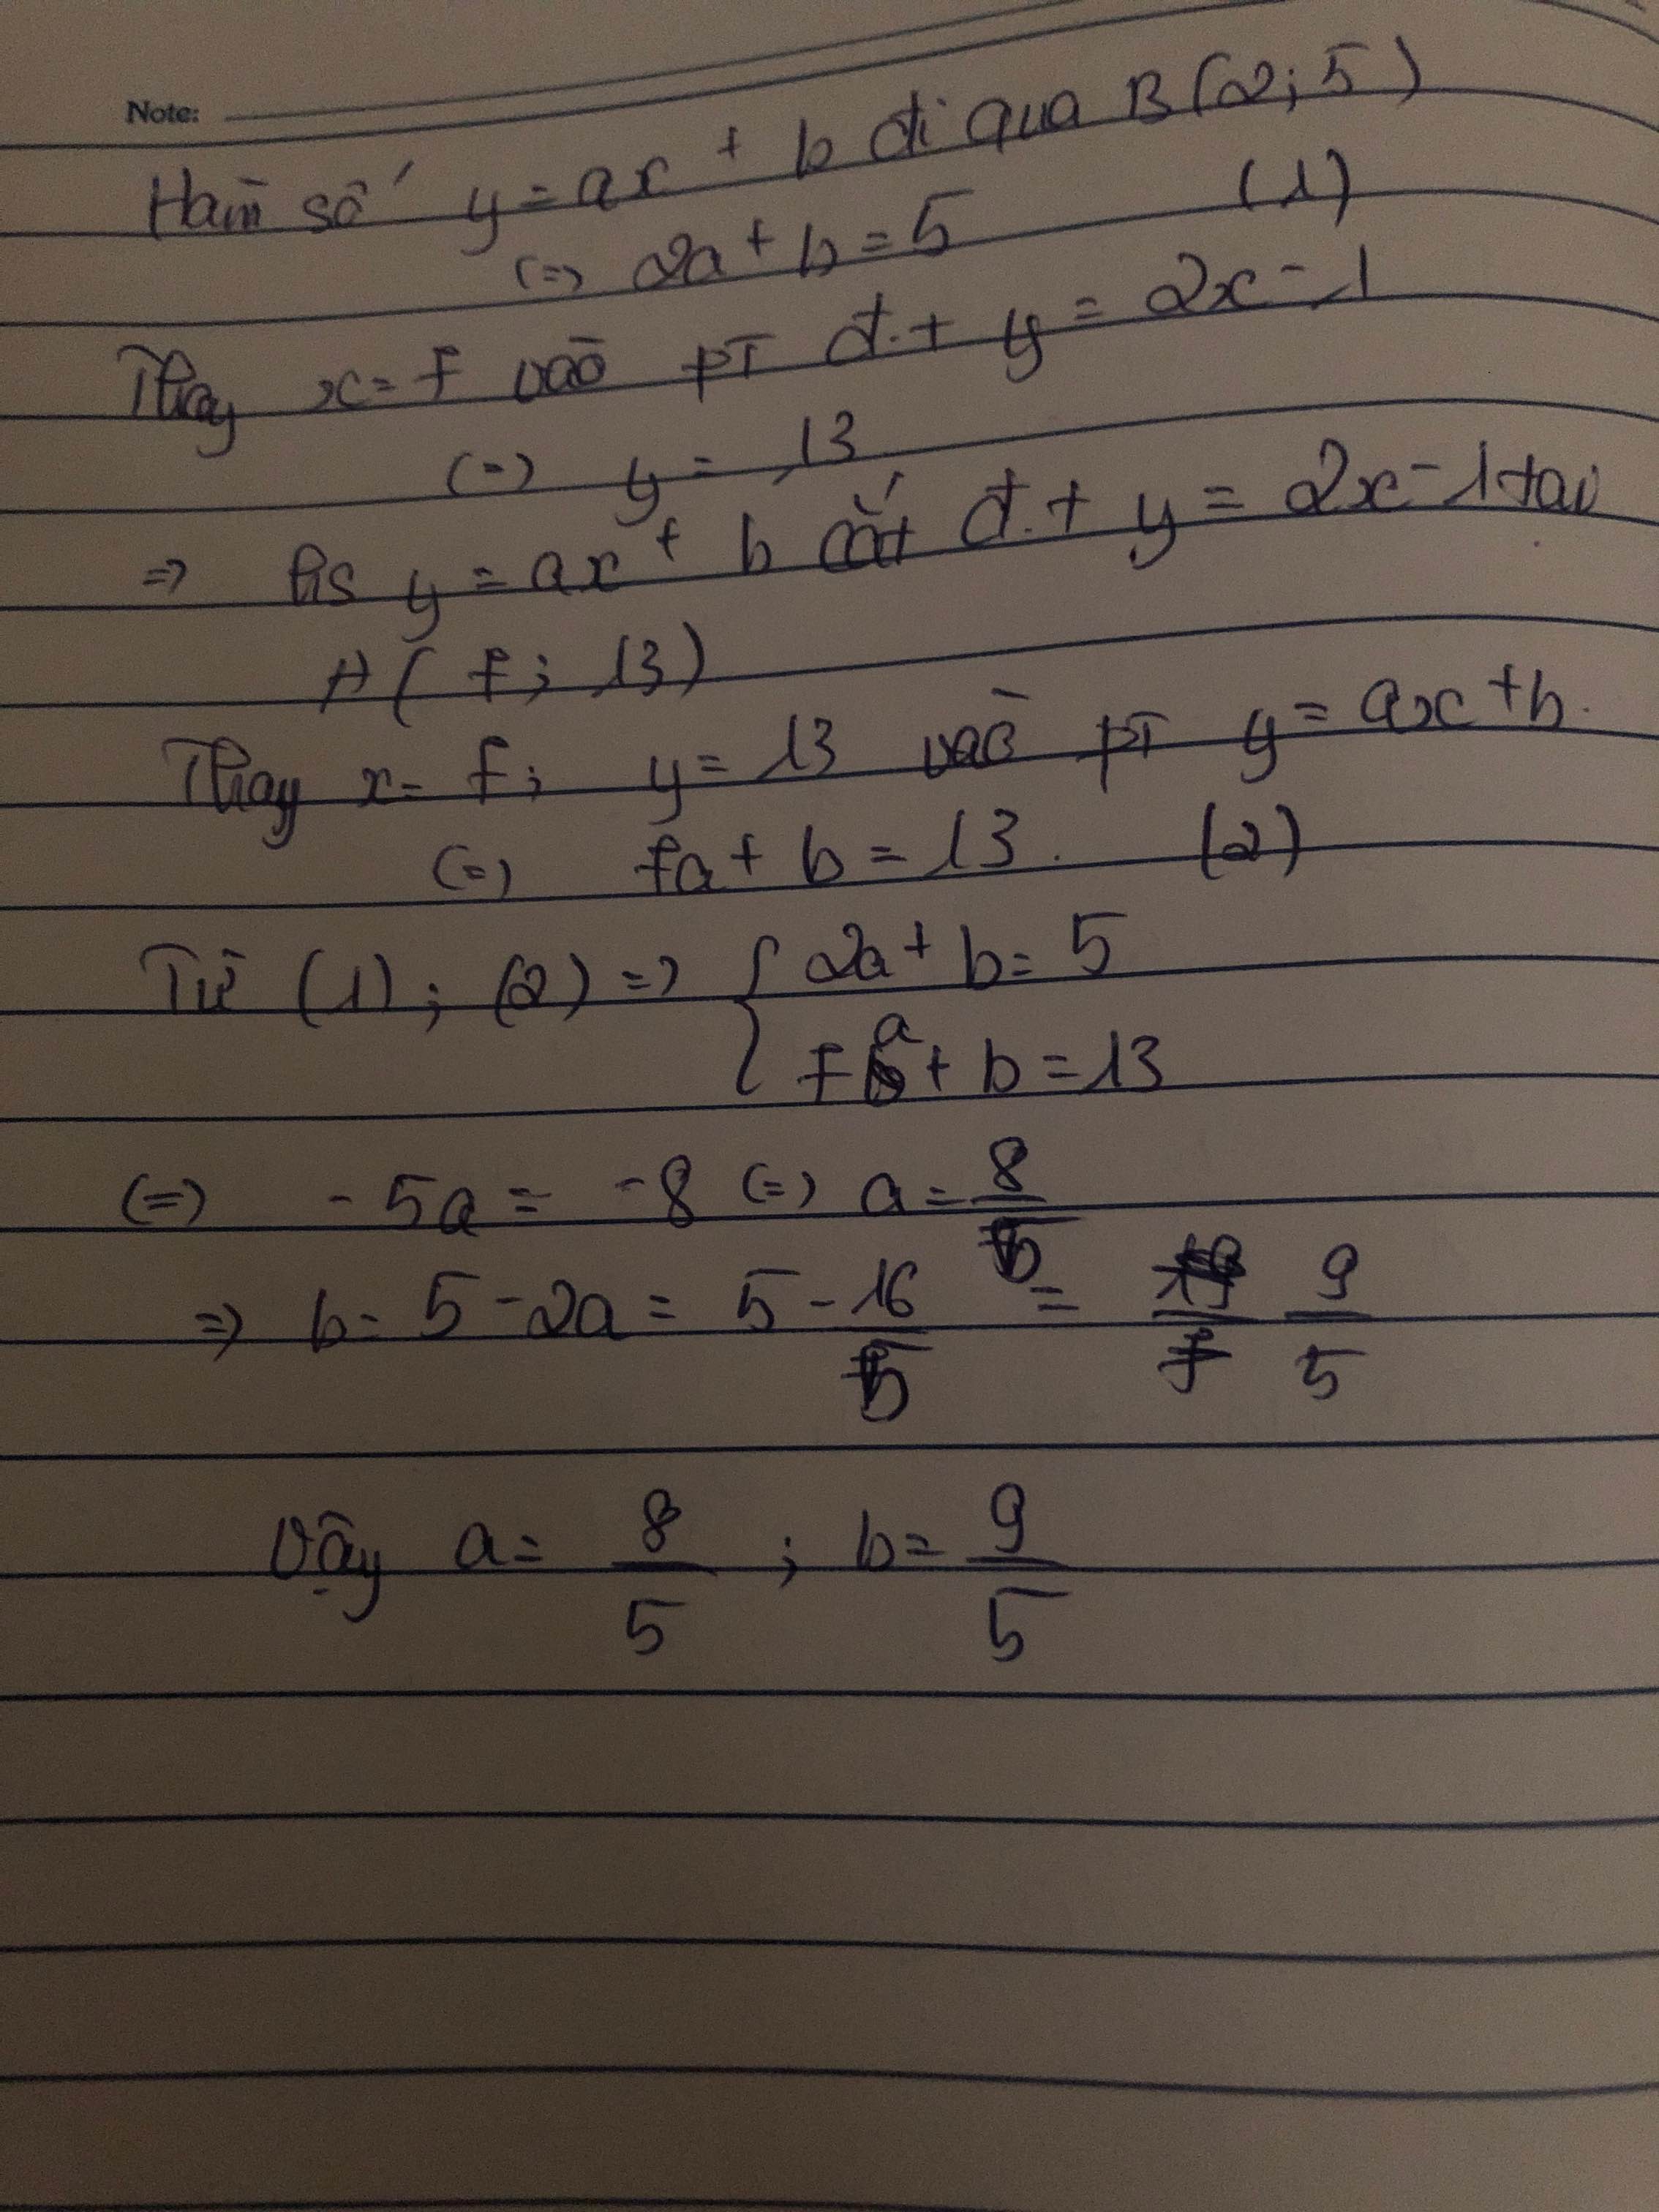 Note:
Hàm số y = ax + b đi qua B(2; 5)
(=) 2a + b = 5 (1)
Thay x = 7 vào pT đ.t y = 2x - 1
(=) y = 13
=> hs y = ax + b cắt đ.t y = 2x - 1 tại
A( 7; 13)
Thay x = 7; y = 13 vào pT y = ax + b.
(=) 7a + b = 13. (2)
Từ (1); (2) => { 2a + b = 5
7a + b = 13
(=) - 5a = -8 (=) a = 8/5
=> b = 5 - 2a = 5 - 16/5 = 9/5
Vậy a = 8/5 ; b = 9/5